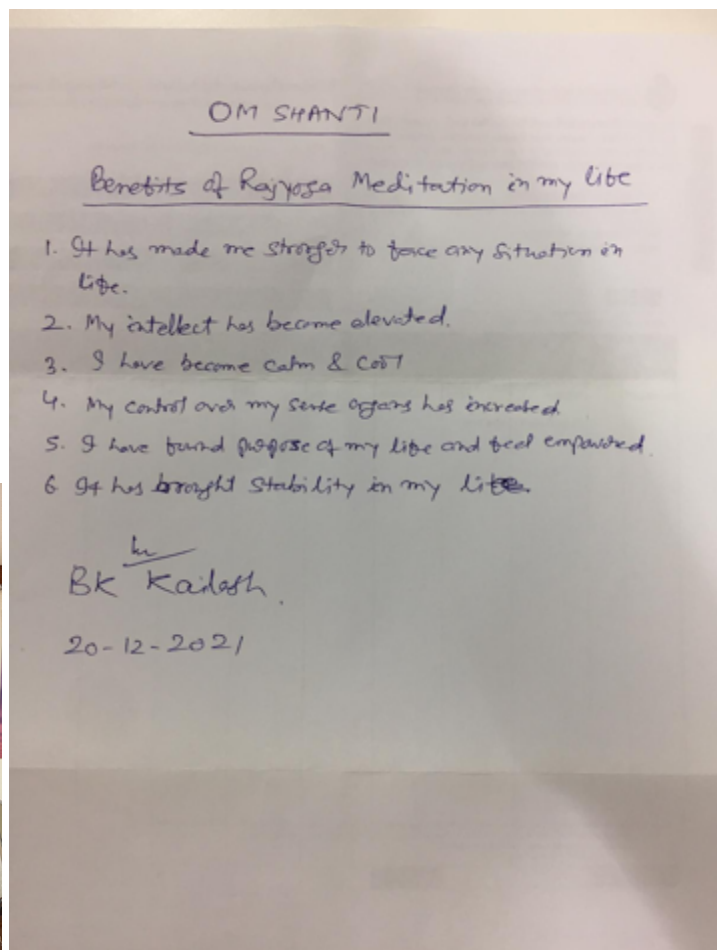 OM SHANTI
Benefits of Rajyoga Meditation in my life
1. It has made me stronger to face any situation in
life.
2. My intellect has become elevated.
3. I have become calm & cool
4. My control over my sense organs has increased
5. I have found purpose of my life and feel empowered.
6 It has brought stability in my life.
BK Kailash
20-12-2021